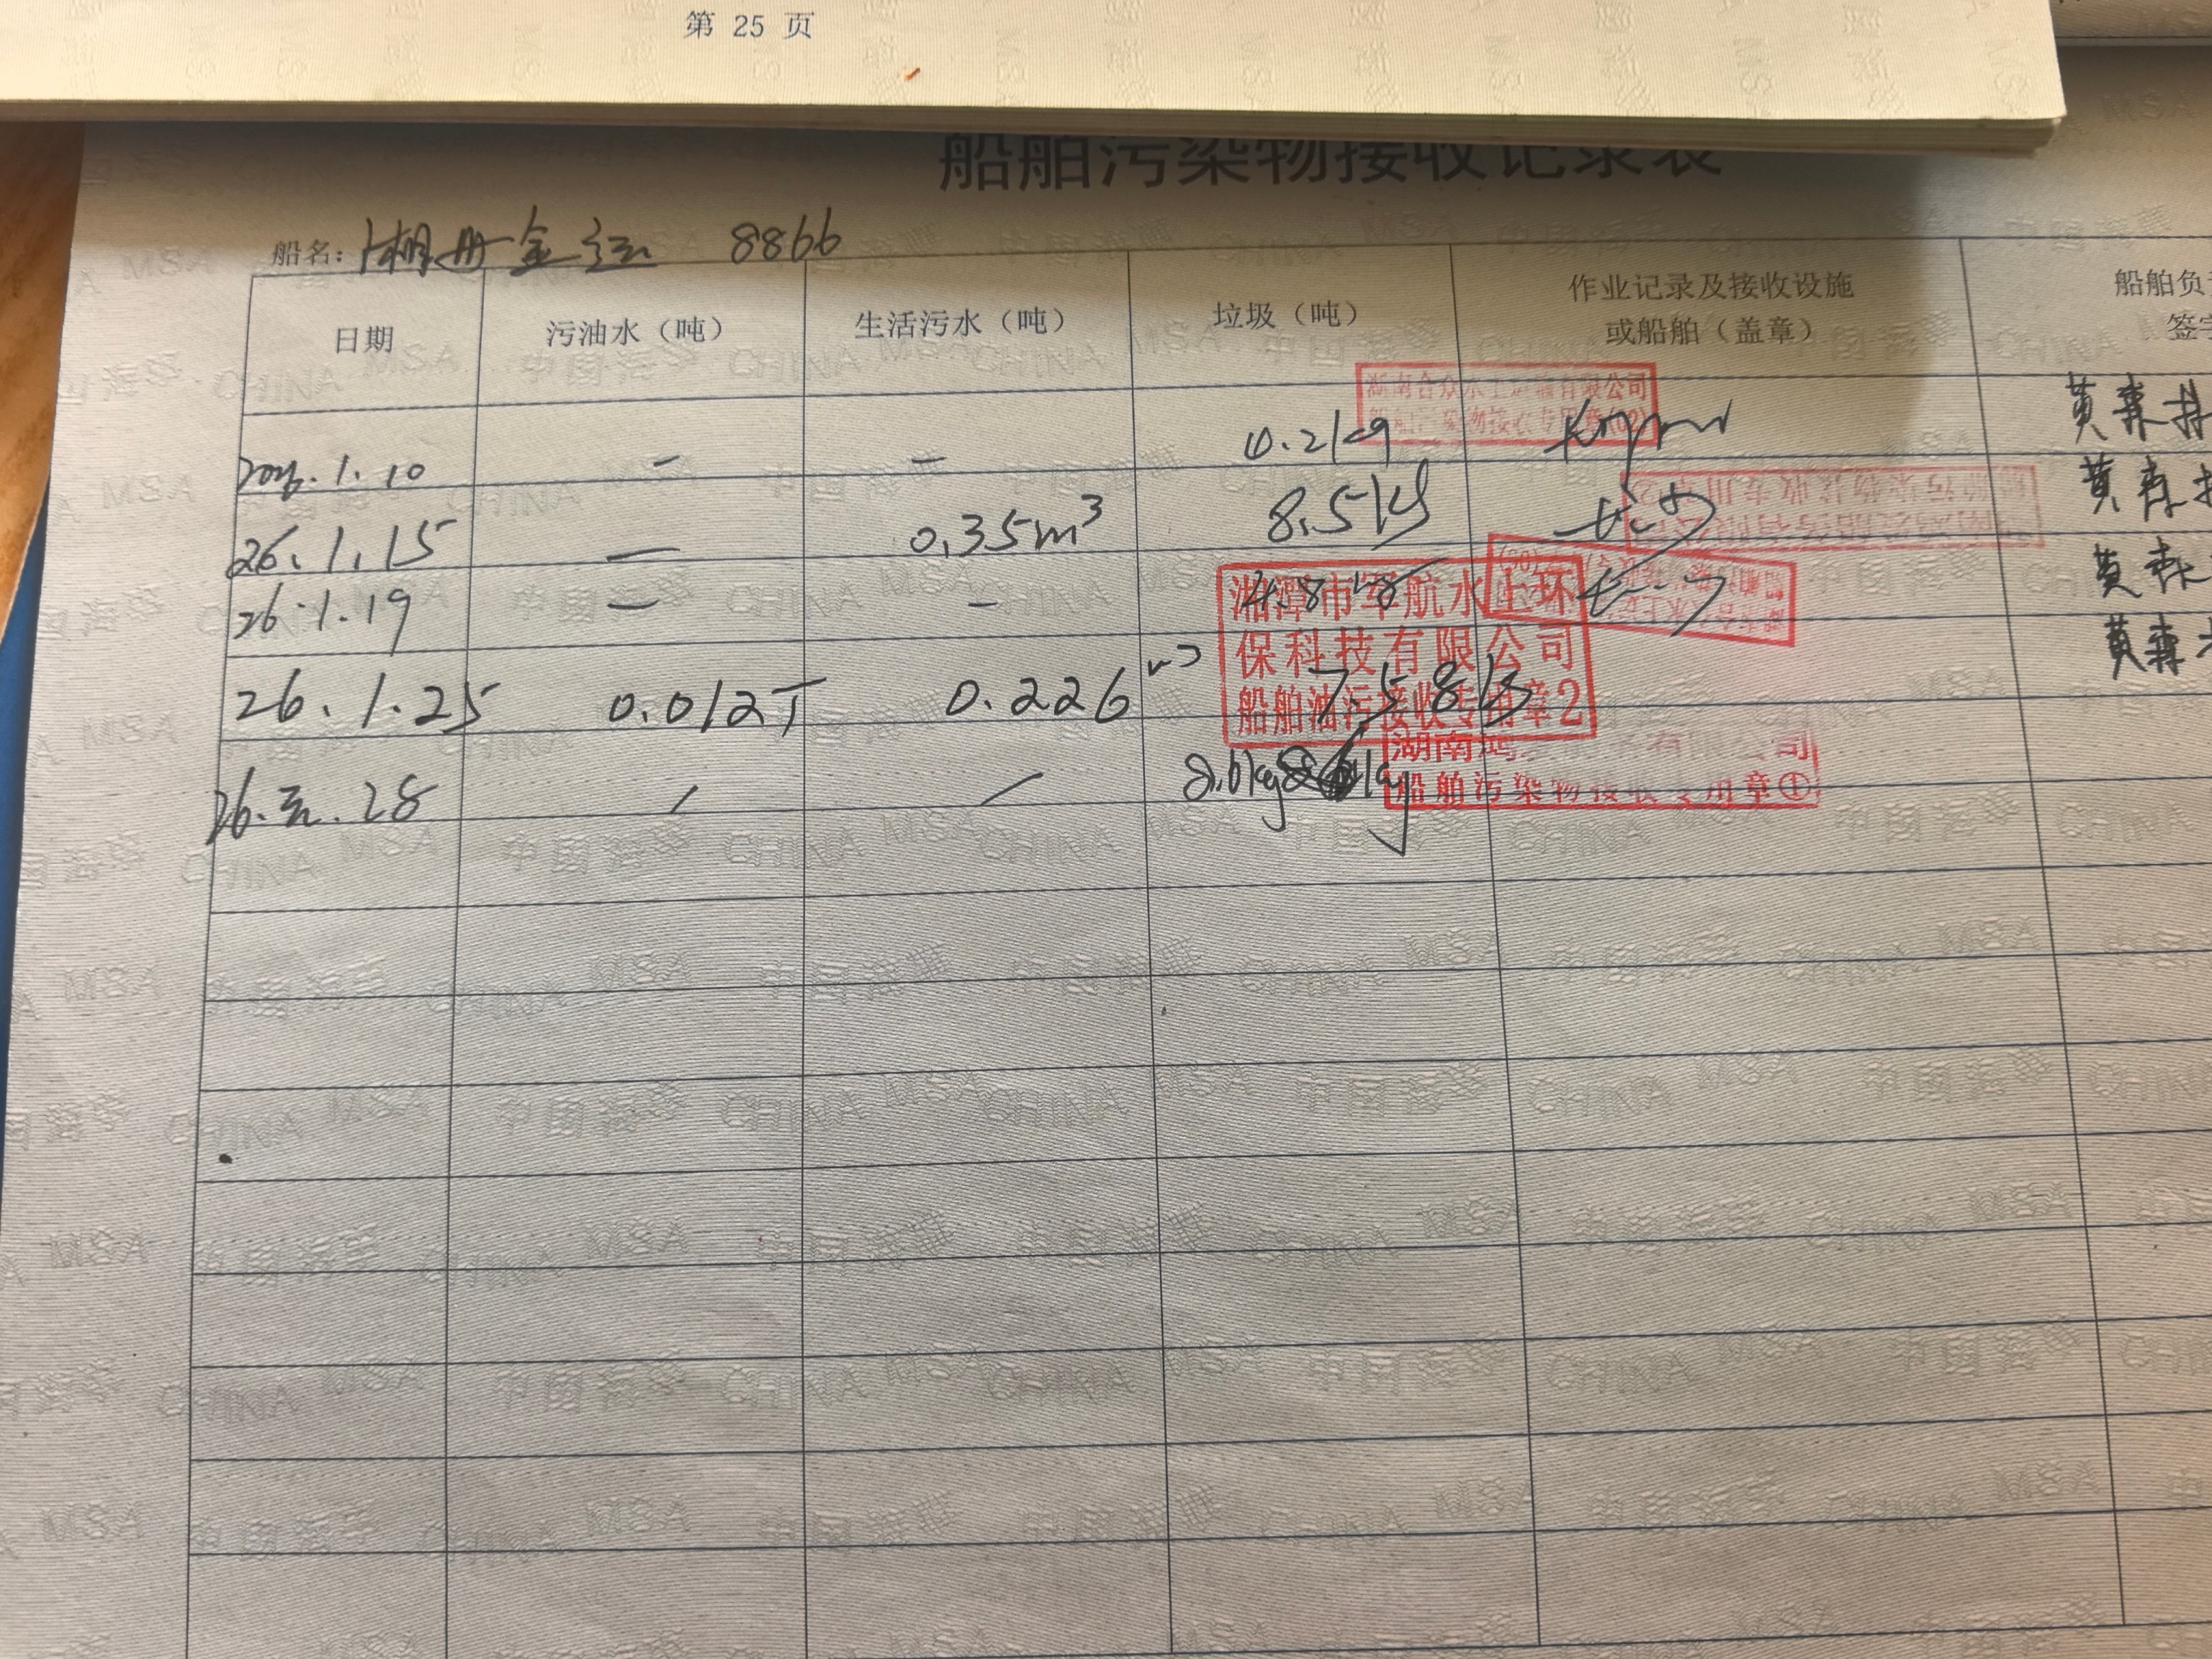 第 25 页
船舶污染物接收记录表
船名: 湘丹金运 8866
日期 污油水（吨） 生活污水（吨） 垃圾（吨） 作业记录及接收设施或船舶（盖章） 船舶负 签字
湖南合众水上运输有限公司
船舶污染物接收专用章(02)
2026.1.10 — — 0.2kg 黄森
26.1.15 — 0.35m³ 8.5kg 黄森
26.1.19 — — 4.8kg 黄森
湘潭市军航水上环
保科技有限公司
船舶油污接收专用章2
26.1.25 0.012T 0.226m³ 7.58kg 黄森
湖南 有 公司
船舶污染物接收专用章①
26.元.28 / / 8.6kg